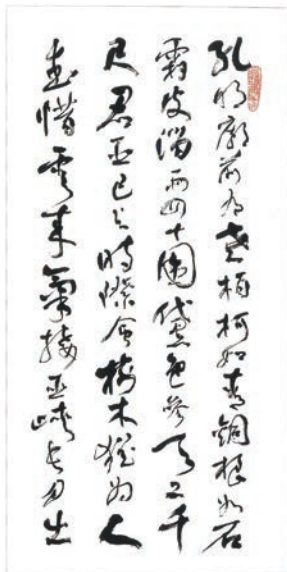 孔明廟前有老柏柯如青銅根如石
霜皮溜雨四十圍黛色參天二千
尺君臣已与時際會樹木猶为人
愛惜雲来氣接巫峽長月出